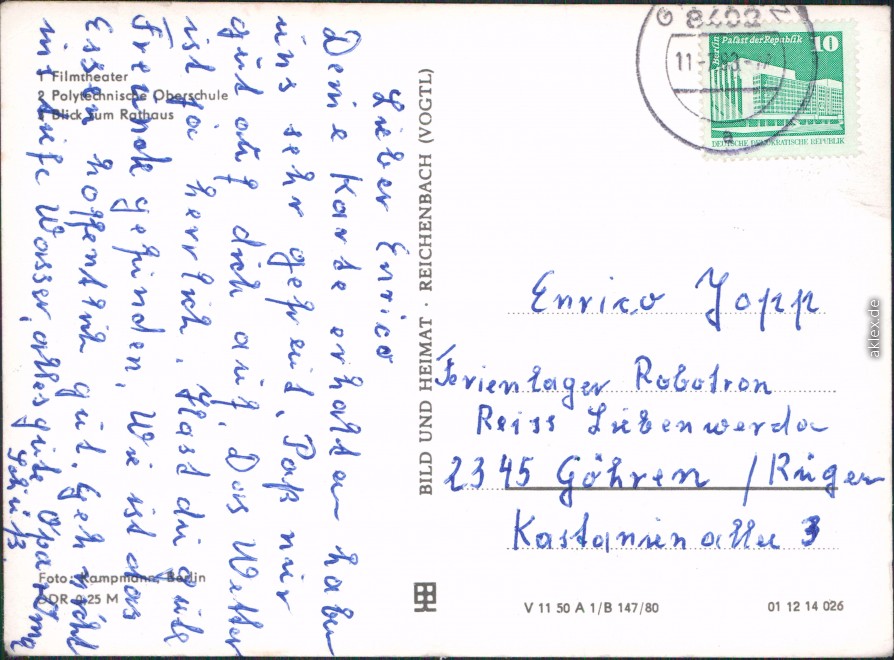 1 Filmtheater
2 Polytechnische Oberschule
3 Blick zum Rathaus
Lieber Enrico
Deine Karte erhalten haben
uns sehr gefreut, Paß nur
gut auf dich auf. Das Wetter
ist ja herrlich. Hast du gute
Freunde gefunden, Wie ist das
Essen hoffentlich gut. Geh nicht
ins tiefe Wasser, alles gute Opa Oma
Foto: Kampmann, Berlin
DDR 0,25 M
BILD UND HEIMAT · REICHENBACH (VOGTL)
8402
11-
a
Berlin Palast der Republik 10
DEUTSCHE DEMOKRATISCHE REPUBLIK
Enrico Jopp
Ferienlager Robotron
Reiss Liebenwerda
2345 Göhren / Rügen
Kastanien allee 3
V 11 50 A 1/B 147/80
01 12 14 026
aklex.de